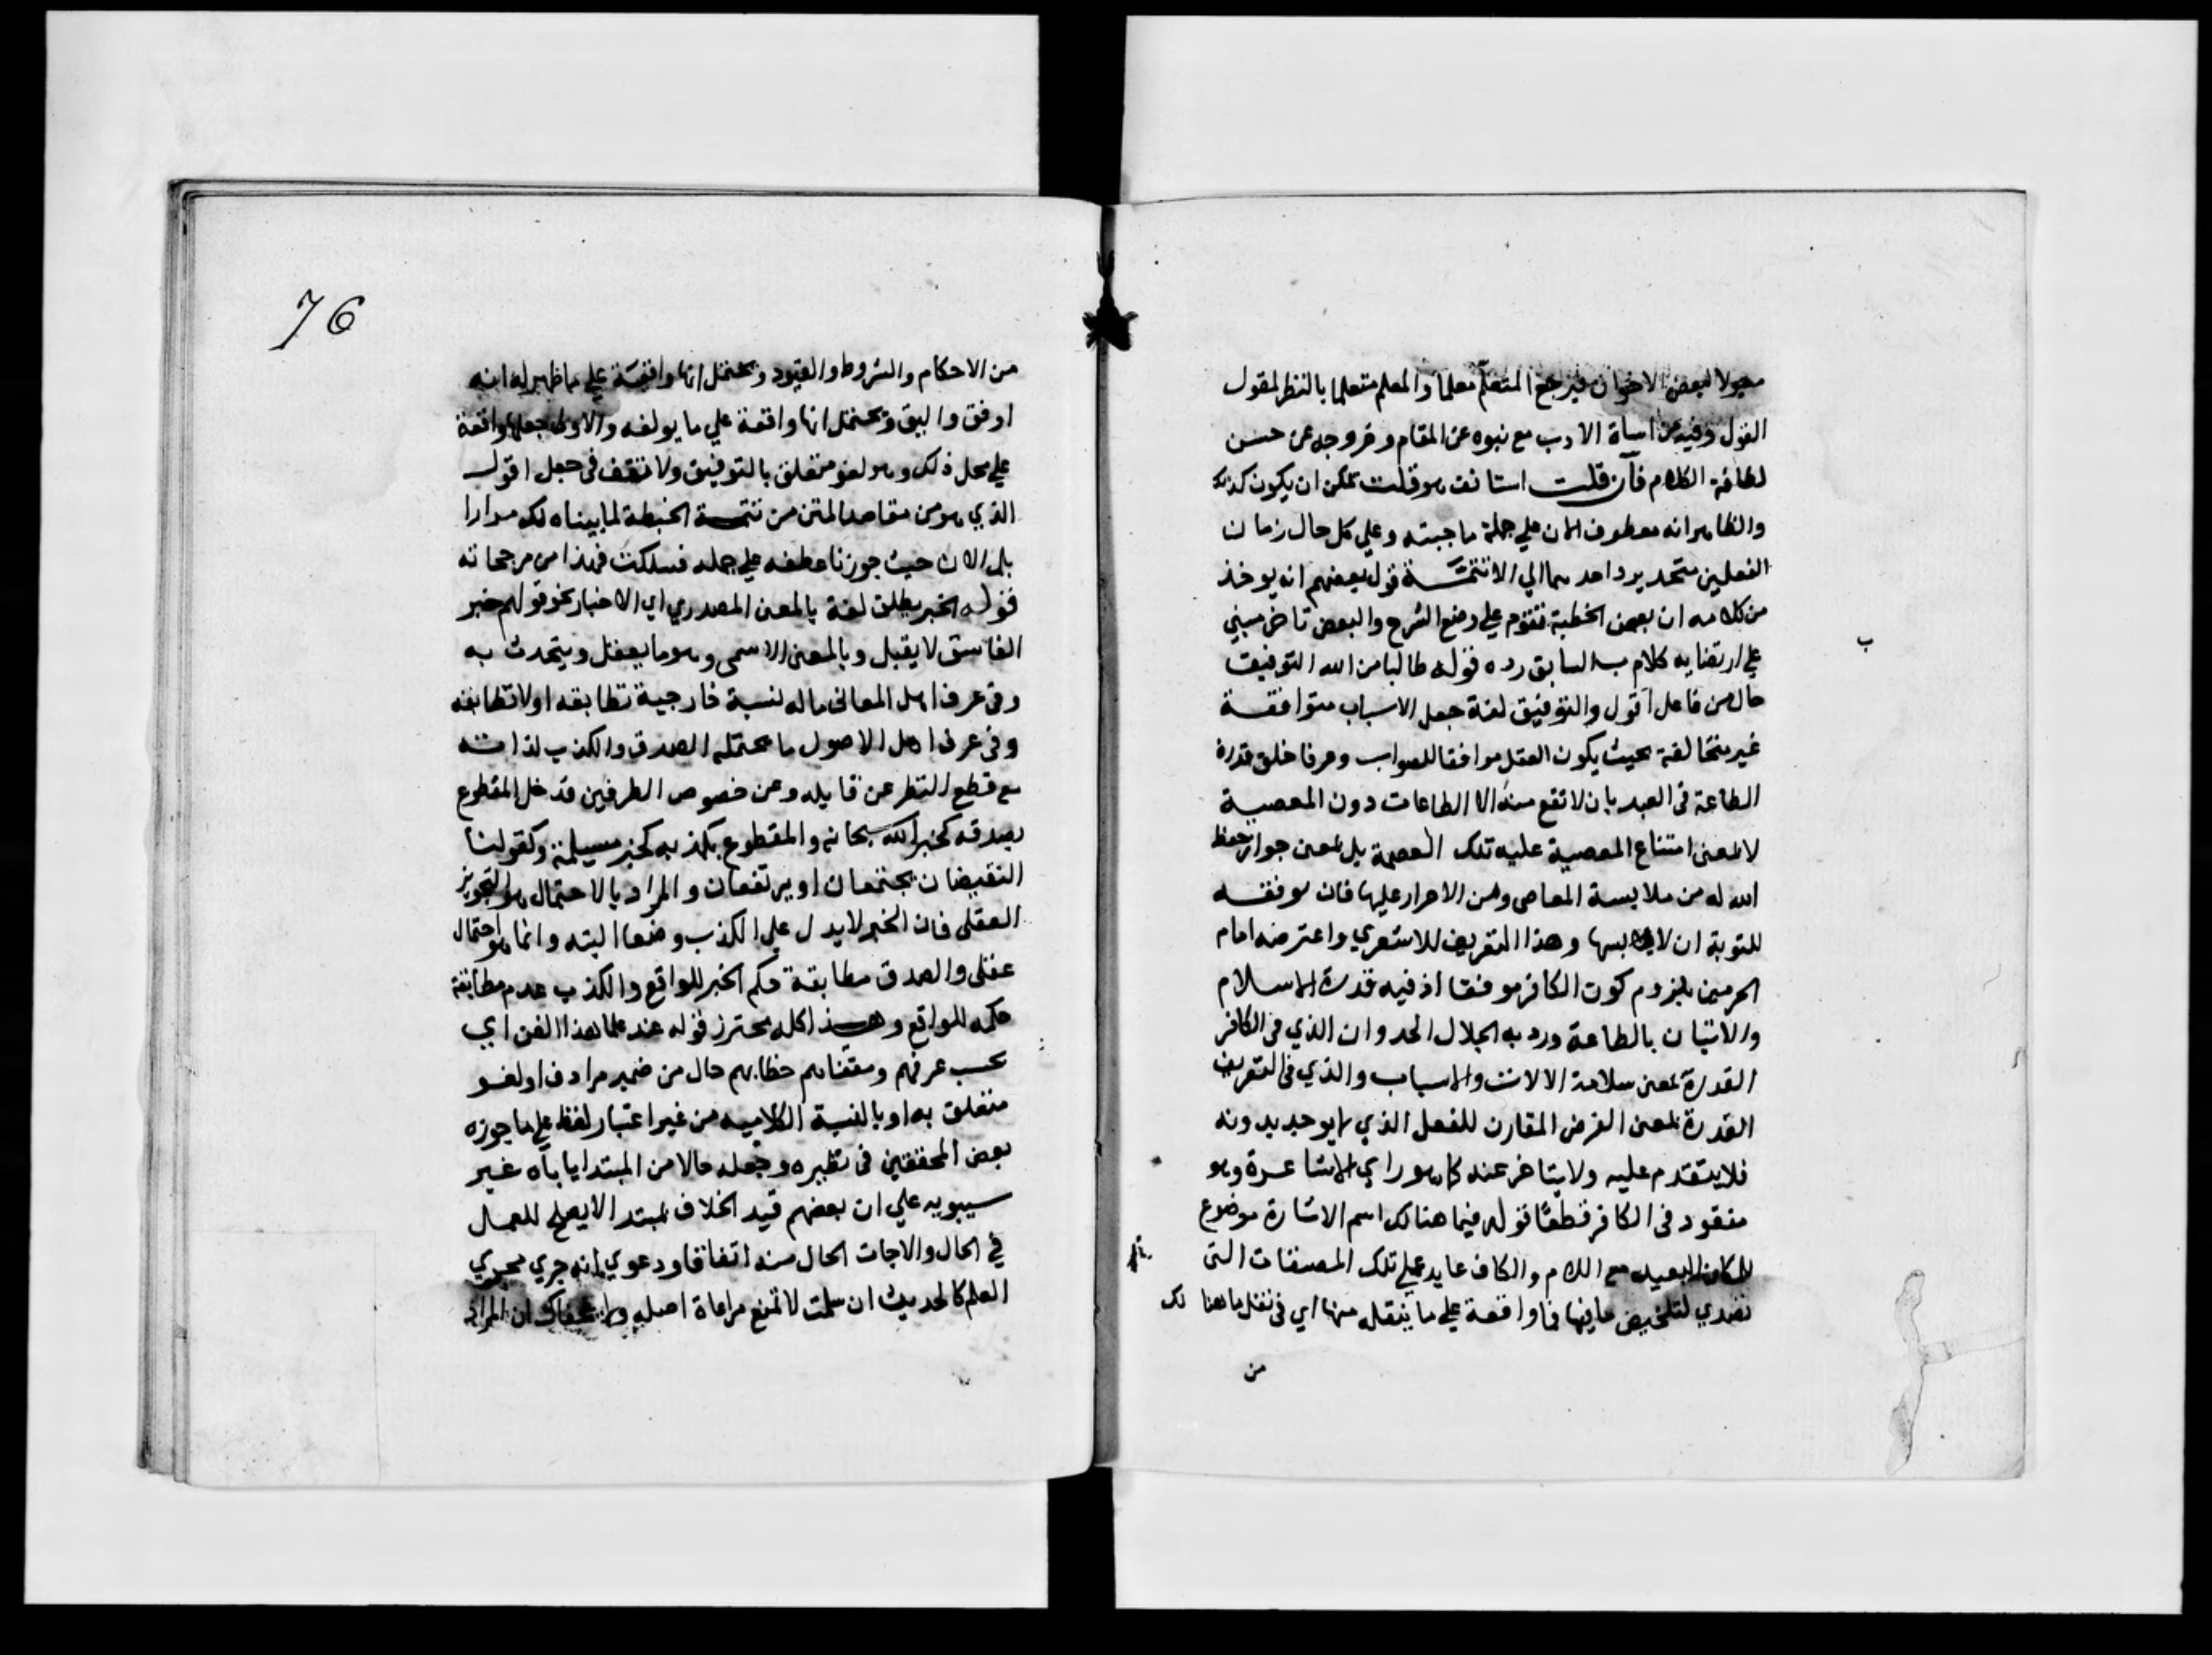 مقولا لبعض الاخوان فيرجع المتعلم معلما والمعلم متعلما بالنظر لمقول
القول وفيه من اساة الادب مع نبوه عن المقام وخروجه عن حسن
لطافة الكلام فان قلت استانف هو قلت يمكن ان يكون كذلك
والظاهر انه معطوف الان علي جملة ما جبته وعلي كل حال زمان
الفعلين متحد يرد احدهما الي الا قول بعضهم انه يوخذ
من كلامه ان بعض الخطبة متقدم علي وضع الشرح والبعض تاخر مبني
علي ارتضايه كلام السابق رده قوله طالبا من الله التوفيق
حال من فاعل اقول والتوفيق لغة جعل الاسباب متوافقة
غير متخالفة بحيث يكون العقل موافقا للصواب وعرفا خلق قدرة
الطاعة في العبد بان لا تقع منه الا الطاعات دون المعصية
لا بمعنى امتناع المعصية عليه تلك العصمة بل بمعنى جواز حفظ
الله له من ملابسة المعاصي ومن الاصرار عليها فان موفقه
للتوبة ان لابسها وهذا التعريف للاشعري واعترضه امام
الحرمين بلزوم كون الكافر موفقا اذ فيه قدرة الاسلام
والاتيان بالطاعة ورد به الجلال الحد وان الذي في الكافر
القدرة بمعنى سلامة الالات والاسباب والذي في التعريف
القدرة بمعنى العرض المقارن للفعل الذي لا يوجد بدونه
فلا يتقدم عليه ولا يتاخر عنه كما هو راي الاشاعرة وهو
مفقود في الكافر قطعا قوله فيما هنالك اسم الاشارة موضوع
للمكان البعيد مع اللام والكاف عايد علي تلك المصنفات التي
تصدي لتلخيص ما فيها فما واقعة علي ما ينقله منها اي في نقل ما هنا لك
من
ب
76
من الاحكام والشروط والقيود ويحتمل انها واقعة علي ما ظهر له انه
اوفق واليق ويحتمل انها واقعة علي ما يولفه والاولى جعلها واقعة
علي محل ذلك وهو لغو متعلق بالتوفيق ولا تقف في جعل اقول
الذي هو من مقاصد المتن من تتمة الخطبة لما بيناه لك مرارا
بلي الان حيث جوزنا عطفه علي جمله فسلكت فهذا من مرجحاته
قوله الخبر يطلق لغة بالمعنى المصدري اي الاخبار نحو قولهم خبر
الفاسق لا يقبل وبالمعنى الاسمي وهو ما يعقل ويتحدث به
وفي عرف اهل المعاني ما له لنسبة خارجية تطابقه او لا تطابقه
وفي عرف اهل الاصول ما يحتمل الصدق والكذب لذاته
مع قطع النظر عن قايله وعن خصوص الطرفين فدخل المقطوع
بصدقه كخبر الله سبحانه والمقطوع بكذبه كخبر مسيلمة وكقولنا
النقيضان يجتمعان او يرتفعان والمراد بالاحتمال هو التجويز
العقلي فان الخبر لا يدل علي الكذب وضعا البته وانما هو احتمال
عقلي والصدق مطابقة حكم الخبر للواقع والكذب عدم مطابقة
حكمه للواقع وهذا كله محترز قوله عند علما هذا الفن اي
بحسب عرفهم ومقتضاهم خطابهم حال من ضمير مرادف او لغو
متعلق به او بالنسبة الكلامية من غير اعتبار لفظ علي ما جوزه
بعض المحققين في نظيره وجعله حالا من المبتدا ياباه غير
سيبويه علي ان بعضهم قيد الخلاف بمبتدا لا يصلح للعمل
في الحال والا جات الحال منه اتفاقا ودعوي انه جري مجري
العلم كالحديث ان سلمت لا تمنع مراعاة اصله ولا يخفاك ان المراد